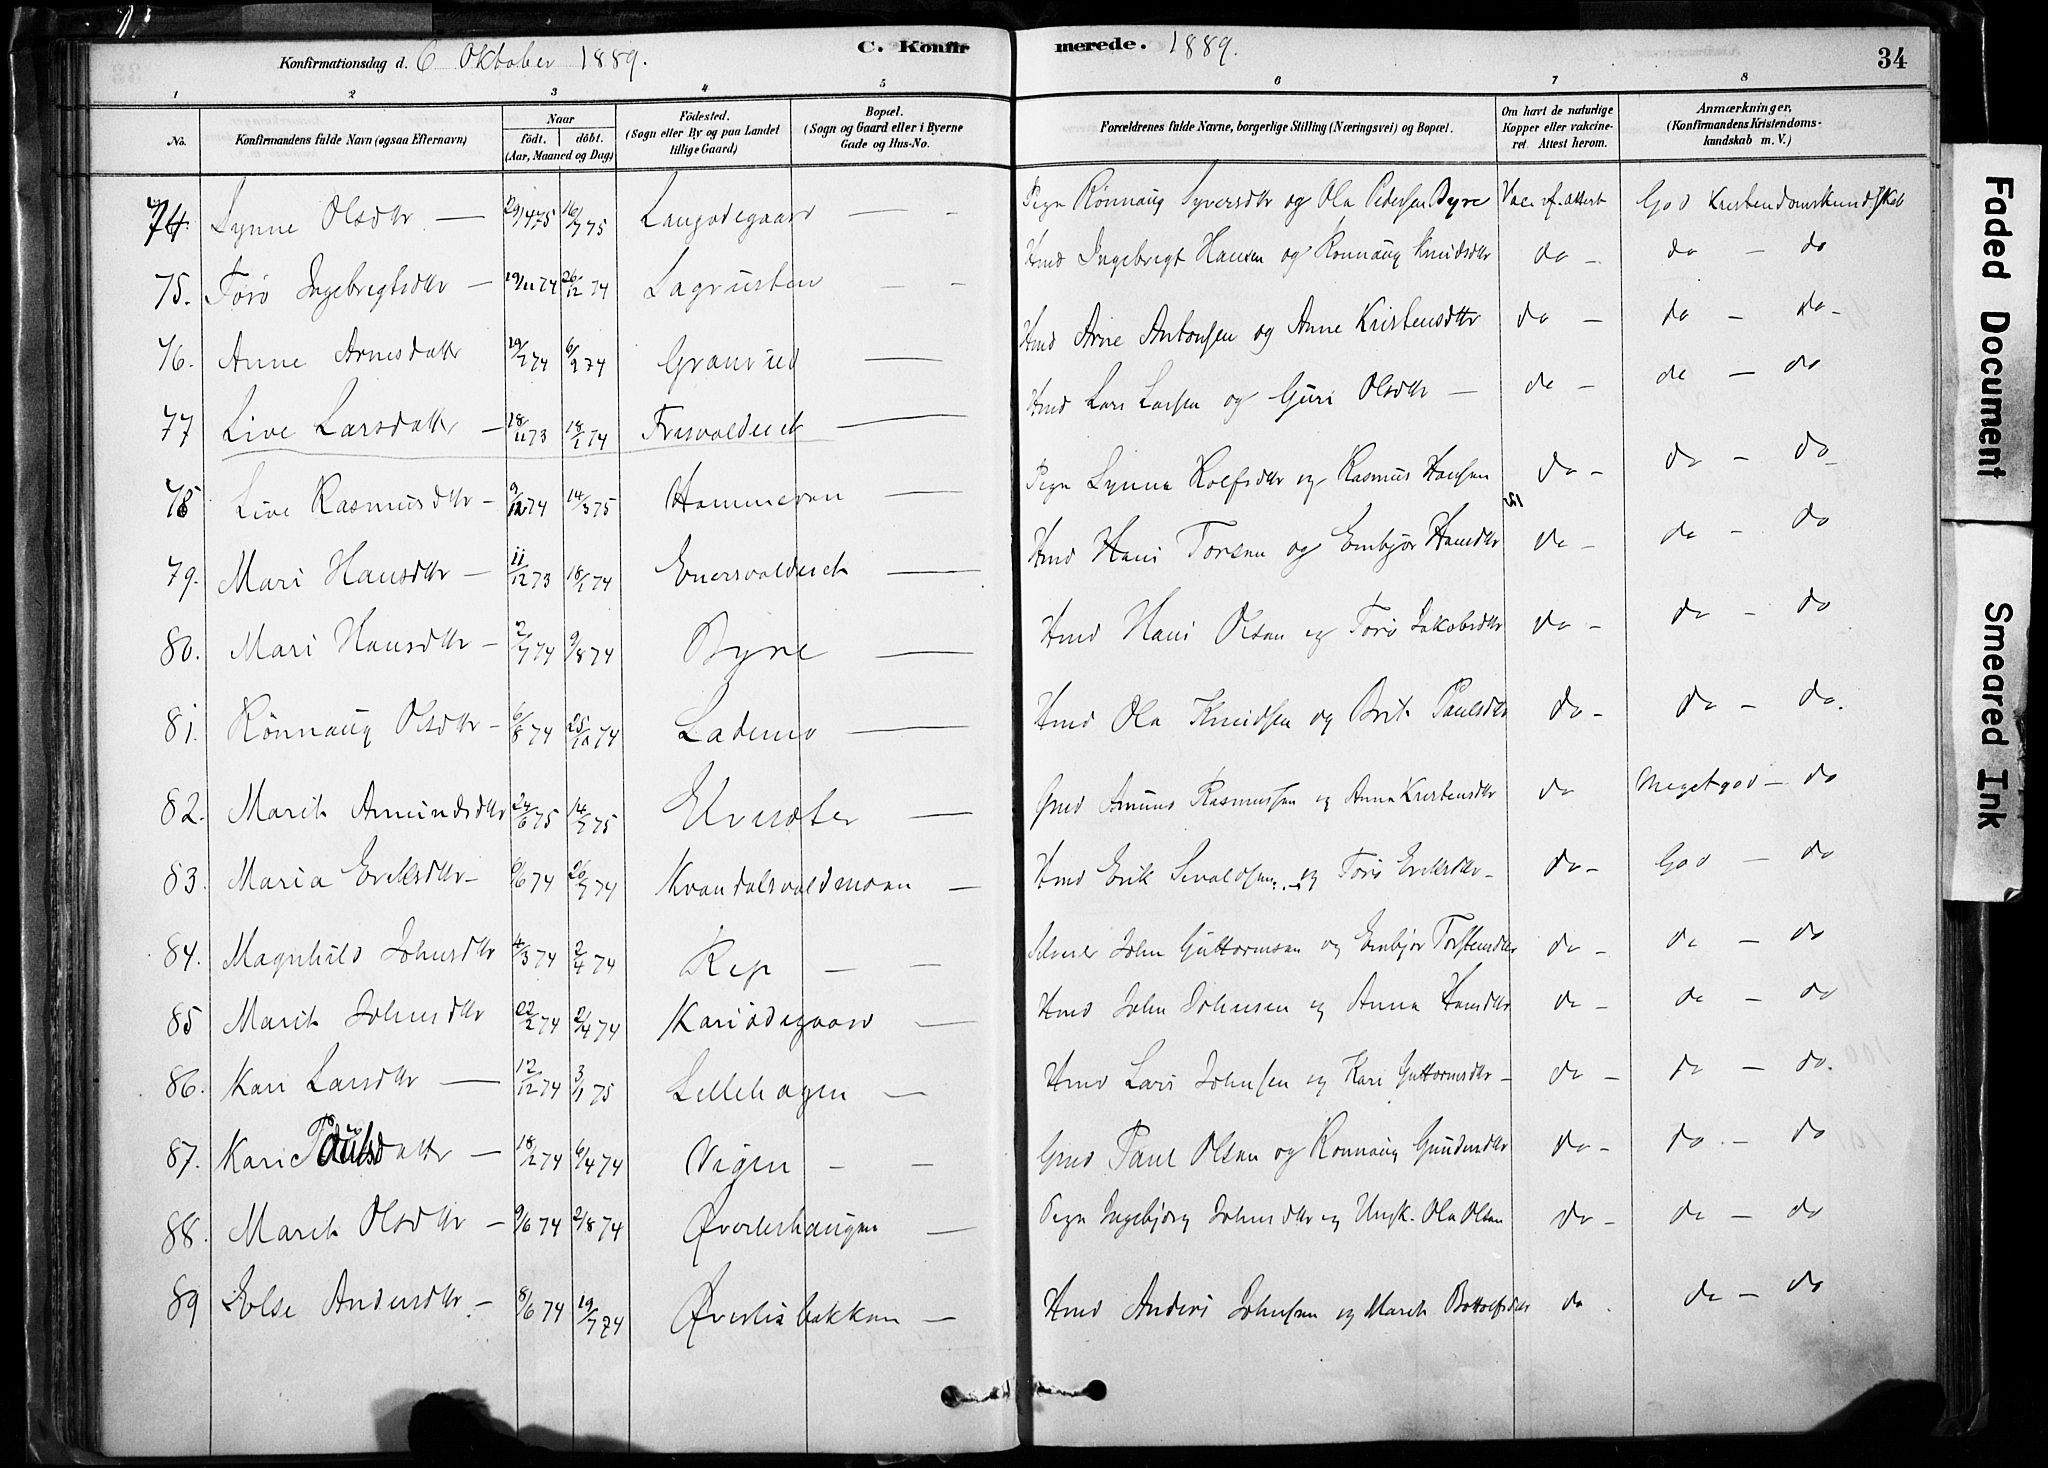 Konfirmationsdag d. 6 Oktober 1889. C. Konfirmerede. 1889. 34
1 2 3 4 5 6 7 8
No. Konfirmandens fulde Navn (ogsaa Efternavn) Naar Födt. döbt. (Aar, Maaned og Dag) Födested. (Sogn eller By og paa Landet tillige Gaard) Bopæl. (Sogn og Gaard eller i Byerne Gade og Hus-No. Forældrenes fulde Navne, borgerlige Stilling (Næringsvei) og Bopæl. Om havt de naturlige Kopper eller vakcineret. Attest herom. Anmærkninger, (Konfirmandens Kristendomskundskab m. V.)
74. Synne Olsdtr — 29/4 75 16/7 75 Langødegaard Pige Rönnaug Syversdtr og Ola Pedersen Byre Vac. ef. attest God Kristendomskundskab
75. Torö Ingebrigtsdtr — 19/11 74 26/12 74 Lagrusten — — Hmd Ingebrigt Hansen og Ronnaug Knudsdtr do — do — do
76. Anne Arnesdatter 19/1 74 6/2 74 Granrud — Hmd Arne Antonsen og Anne Kristensdtr do — do — do —
77 Live Larsdatter — 18/11 73 18/1 74 Frisvoldeiet — Hmd Lars Larsen og Guri Olsdtr — do — do — do
78 Live Rasmusdtr — 9/12 74 14/3 75 Hammeren — Pige Synne Rolfsdtr og Rasmus Hansen do — do — do
79. Mari Hansdtr — 11/12 73 18/1 74 Enersvoldeiet — Hmd Hans Torsen og Embjör Hansdtr do — do — do
80. Mari Hansdtr — 2/7 74 9/8 74 Byre — Hmd Hans Olsen og Torö Jakobsdtr do — do — do
81. Rönnaug Olsdtr — 6/8 74 25/10 74 Lademo — Hmd Ola Knudsen og Brit Paulsdtr do — do — do.
82. Marit Amundsdtr 24/6 75 14/7 75 Elvesæter — Gmd Amund Rasmussen og Anna Kristensdtr do Meget god — do
83. Maria Eriksdtr — 9/6 74 26/7 74 Kvandalsvoldmoen — Hmd Erik Sivaldsen og Torö Eriksdtr — do — God — do
84. Magnhild Johnsdtr 4/3 74 2/4 74 Rep — — Selveier John Guttormsen og Embjör Torstensdtr do — do — do
85 Marit Johnsdtr 22/2 74 2/4 74 Kariødegaard — Hmd John Johnsen og Anna Hansdtr do — do — do
86. Kari Larsdtr — 12/12 74 3/1 75 Lillehagen — Hmd Lars Johnsen og Kari Guttormsdtr — do — do — do.
87. Kari Paulsdatter — 18/2 74 6/4 74 Vigen — — Gmd Paul Olsen og Ronnaug Gundersdtr do — do — do
88. Marit Olsdtr — 9/6 74 2/8 74 Øverlihaugen — Pige Ingebjörg Johnsdtr og Ungk. Ola Olsen do — do — do
89 Eolse Andersdtr. — 8/6 74 19/7 74 Øverliebakken — Hmd Anders Johnsen og Marit Bottolfsdtr do do — do
Faded Document
Smeared Ink